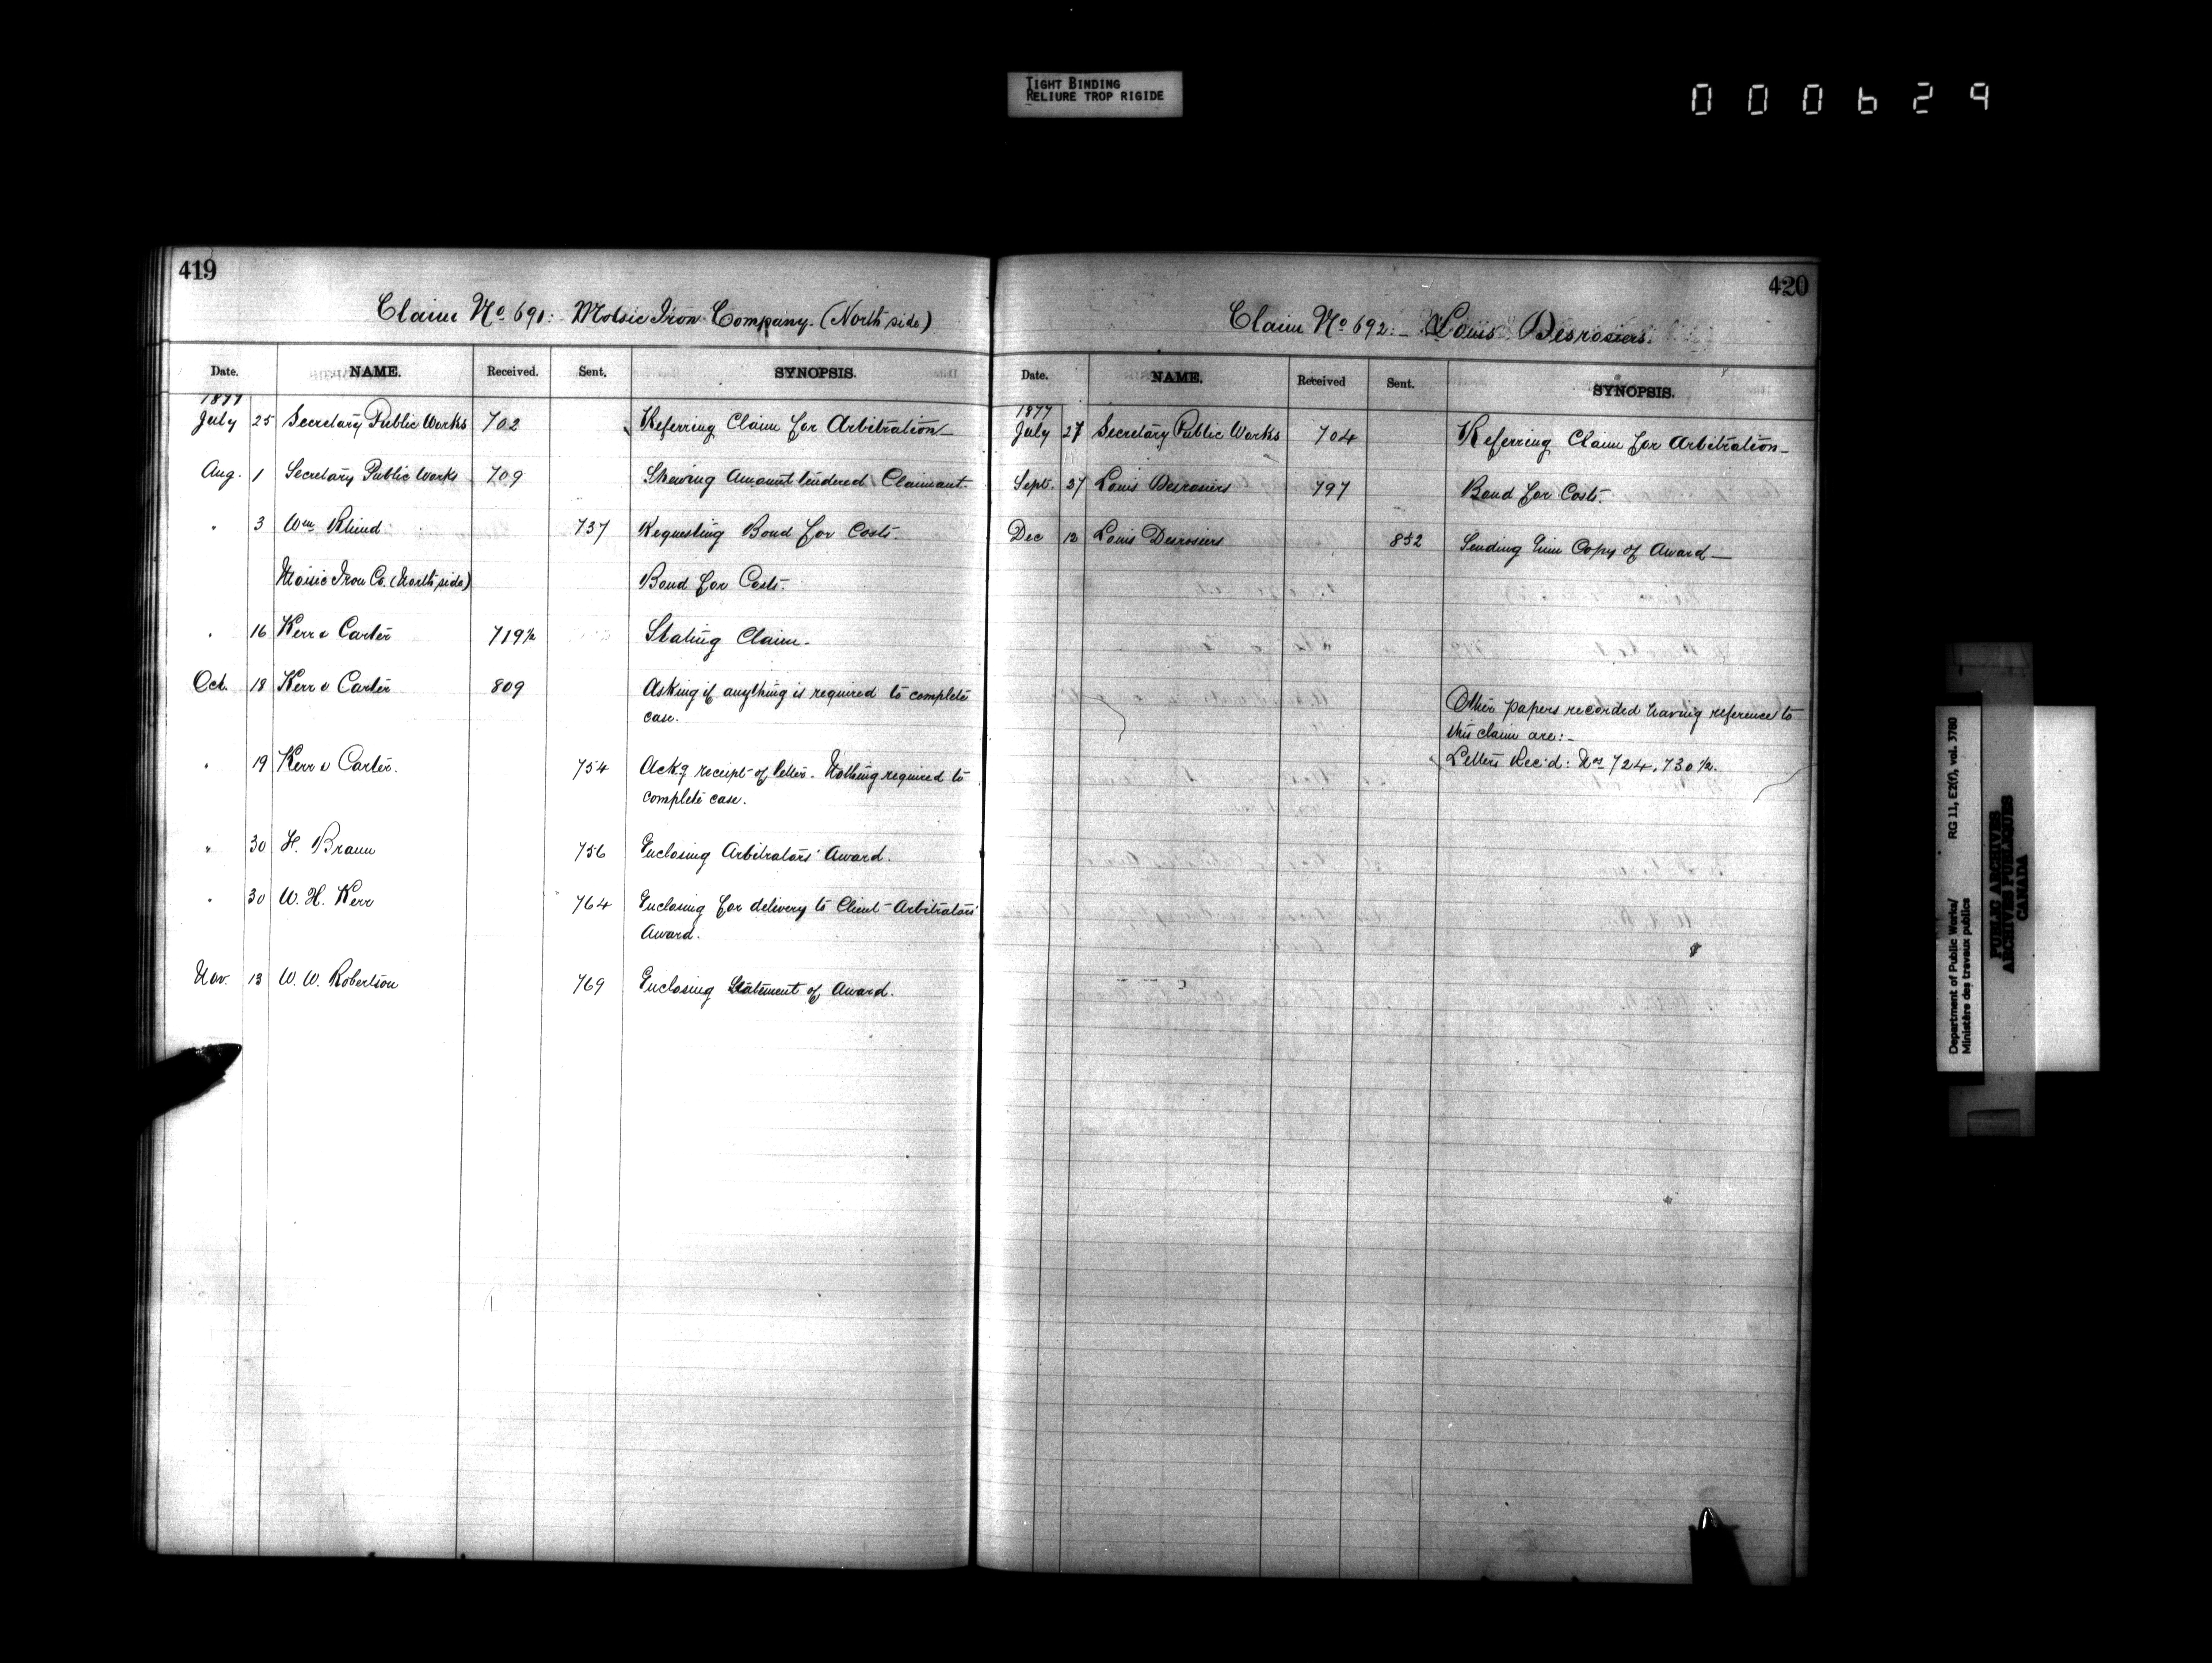 TIGHT BINDING
RELIURE TROP RIGIDE
000629
419
Claim No 691:- Moisic Iron Company. (North side)
Date. NAME. Received. Sent. SYNOPSIS.
1877
July 25 Secretary Public Works 702 Referring Claim for Arbitration-
Aug. 1 Secretary Public Works 709 Shewing amount tendered Claimant.
" 3 Wm Rhind 737 Requesting Bond for Costs.
Moisic Iron Co. (North side) Bond for Costs.
" 16 Kerr & Carter 719½ Stating Claim.
Oct. 18 Kerr & Carter 809 Asking if anything is required to complete
case.
" 19 Kerr & Carter. 754 Ackg receipt of letter. Nothing required to
complete case.
" 30 H. Braun 756 Enclosing Arbitrators' Award.
" 30 W. H. Kerr 764 Enclosing for delivery to Client Arbitrators'
Award.
Nov. 13 W. W. Robertson 769 Enclosing Statement of Award.
420
Claim No 692:- Louis Desrosiers.
Date. NAME. Received Sent. SYNOPSIS.
1877
July 27 Secretary Public Works 704 Referring Claim for Arbitration-
Sept. 27 Louis Desrosiers 797 Bond for Costs.
Dec 12 Louis Desrosiers 852 Sending him Copy of Award-
Other papers recorded having reference to
this claim are:-
Letters Rec'd: Nos 724, 730½.
Department of Public Works/ RG 11, E2(f), vol. 3780
Ministère des travaux publics
PUBLIC ARCHIVES
ARCHIVES PUBLIQUES
CANADA